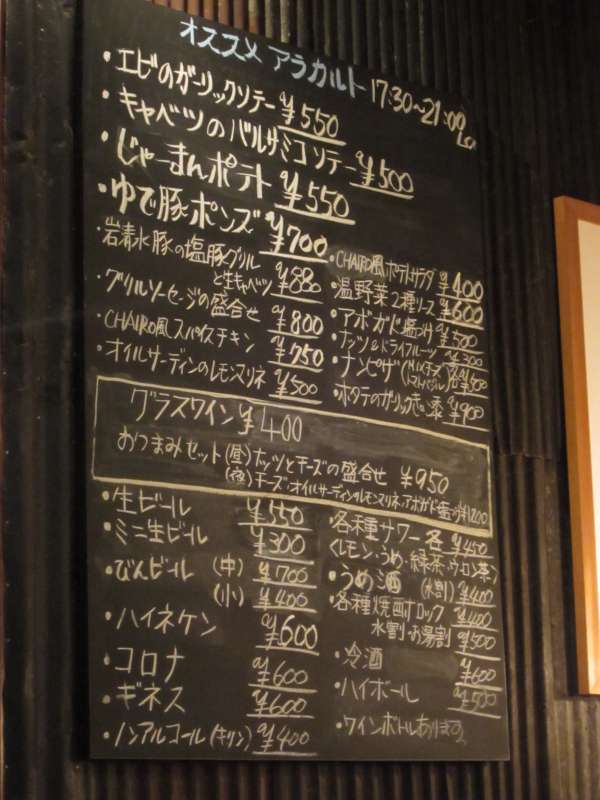 オススメ アラカルト 17:30~21:00
・エビのガーリックソテー ¥550
・キャベツのバルサミコソテー ¥500
・じゃーまんポテト ¥550
・ゆで豚ポンズ ¥700
・岩清水豚の塩豚グリル
と生キャベツ ¥880
・グリルソーセージの盛合せ ¥800
・CHAIRO風スパイスチキン ¥750
・オイルサーディンのレモンマリネ ¥500
・CHAIRO風ポテトサラダ ¥400
・温野菜2種ソース ¥600
・アボガド塩づけ ¥500
・ナッツ&ドライフルーツ ¥300
・ナンピザ (MIXチーズ
トマトバジル) 各¥400
・ホタテのガーリック ¥900
グラスワイン ¥400
おつまみセット (昼) ナッツとチーズの盛合せ ¥950
(夜) チーズ・オイルサーディンのレモンマリネ・アボガド塩づけ ¥1200
・生ビール ¥550
・ミニ生ビール ¥300
・びんビール (中) ¥700
(小) ¥400
・ハイネケン ¥600
・コロナ ¥600
・ギネス ¥600
・ノンアルコール (キリン) ¥400
・各種サワー 各¥450
(レモン・うめ・緑茶・ウーロン茶)
・うめ酒 (水割) ¥400
・各種焼酎 ロック ¥400
水割・お湯割 ¥500
・冷酒 ¥600
・ハイボール ¥500
・ワインボトルあります